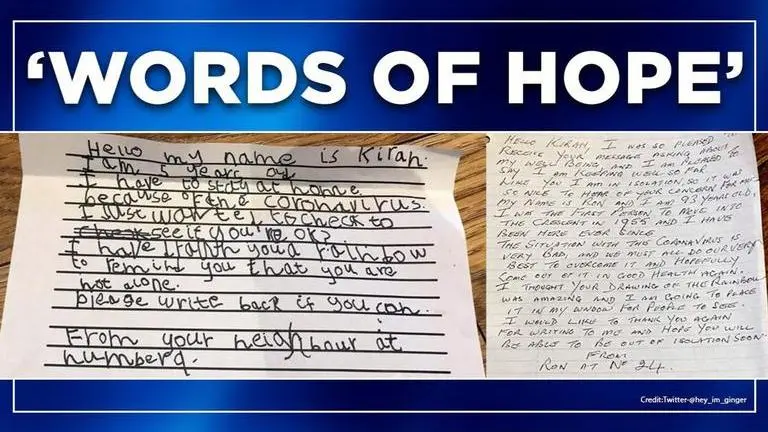 ‘WORDS OF HOPE’
Hello my name is Kirah.
I am 5 years old
I have to stay at home
because of the coronavirus.
I just wanted to check to
check see if you're ok?
I have drawn you a rainbow
to remind you that you are
not alone.
please write back if you can.
From your neighbour at
number 9.
HELLO KIRAH, I WAS SO PLEASED TO
RECEIVE YOUR MESSAGE ASKING ABOUT
MY WELL BEING, AND I AM PLEASED TO
SAY I AM KEEPING WELL SO FAR
LIKE YOU I AM IN ISOLATION, SO IT WAS
SO NICE TO HEAR OF YOUR CONCERN FOR ME.
MY NAME IS RON AND I AM 93 YEARS OLD,
I WAS THE FIRST PERSON TO MOVE INTO
THE CRESCENT IN 1955 AND I HAVE
BEEN HERE EVER SINCE
THE SITUATION WITH THE CORONAVIRUS IS
VERY BAD, AND WE MUST ALL DO OUR VERY
BEST TO OVERCOME IT AND HOPEFULLY
COME OUT OF IT IN GOOD HEALTH AGAIN.
I THOUGHT YOUR DRAWING OF THE RAINBOW
WAS AMAZING AND I AM GOING TO PLACE
IT IN MY WINDOW FOR PEOPLE TO SEE.
I WOULD LIKE TO THANK YOU AGAIN
FOR WRITING TO ME AND HOPE YOU WILL
BE ABLE TO BE OUT OF ISOLATION SOON.
FROM
RON AT No 24.
Credit:Twitter-@hey_im_ginger